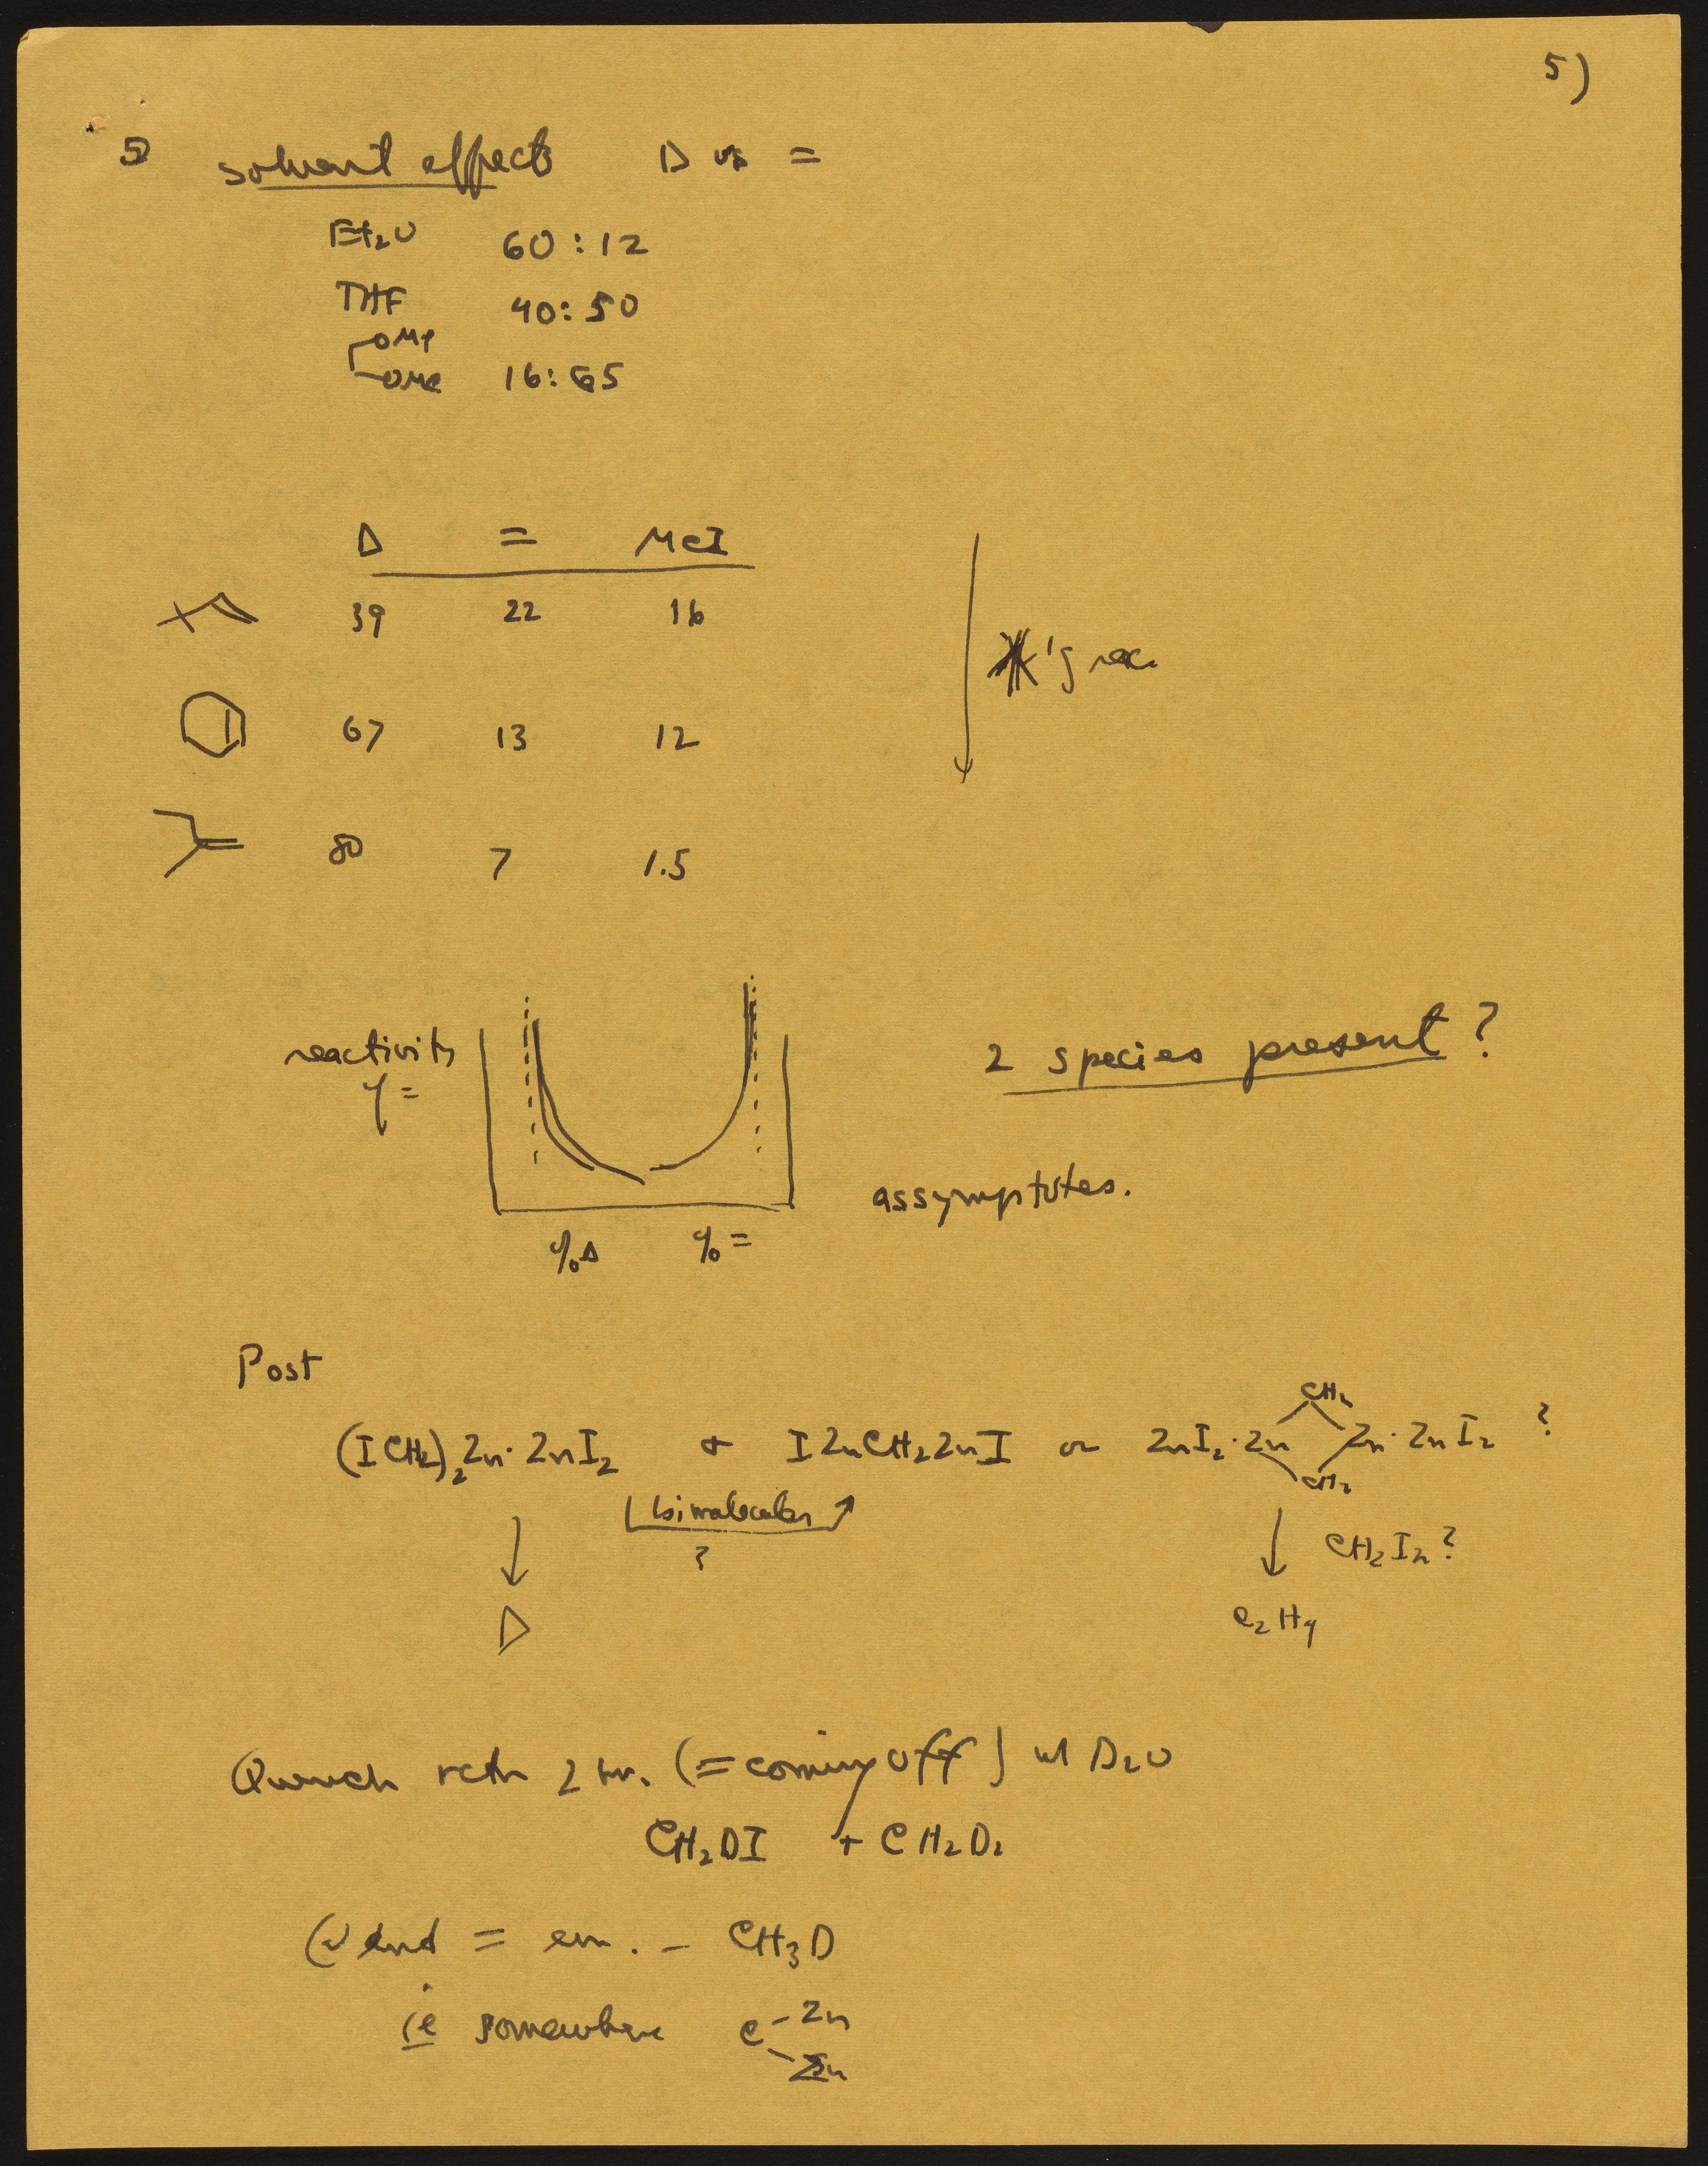 5)
5 solvent effects Δ vs =
Et₂O 60:12
THF 40:50
OMe
OMe 16:65
Δ = MeI
39 22 16
67 13 12
80 7 1.5
'g rxc.
reactivity
2 species present?
assymptotes.
%Δ %=
Post
(ICH₂)₂Zn·ZnI₂ + IZnCH₂ZnI or ZnI₂·Zn CH₂ CH₂ Zn·ZnI₂ ?
bimolecular
?
CH₂I₂?
Δ
C₂H₄
Quench rctn 2 hr. (= coming off) w/ D₂O
CH₂DI + CH₂D₂
end = em. - CH₃D
ie somewhere C Zn
Zn